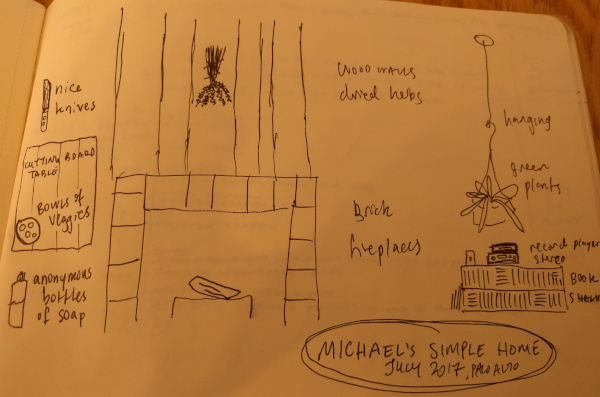 nice
knives
CUTTING BOARD
TABLE
BOWLS OF
VEGGIES
anonymous
bottles
of soap
WOOD WALLS
dried herbs
Brick
fireplaces
hanging
green
plants
record player
stereo
BOOK
SHELF
MICHAEL'S SIMPLE HOME
JULY 2017, PALO ALTO